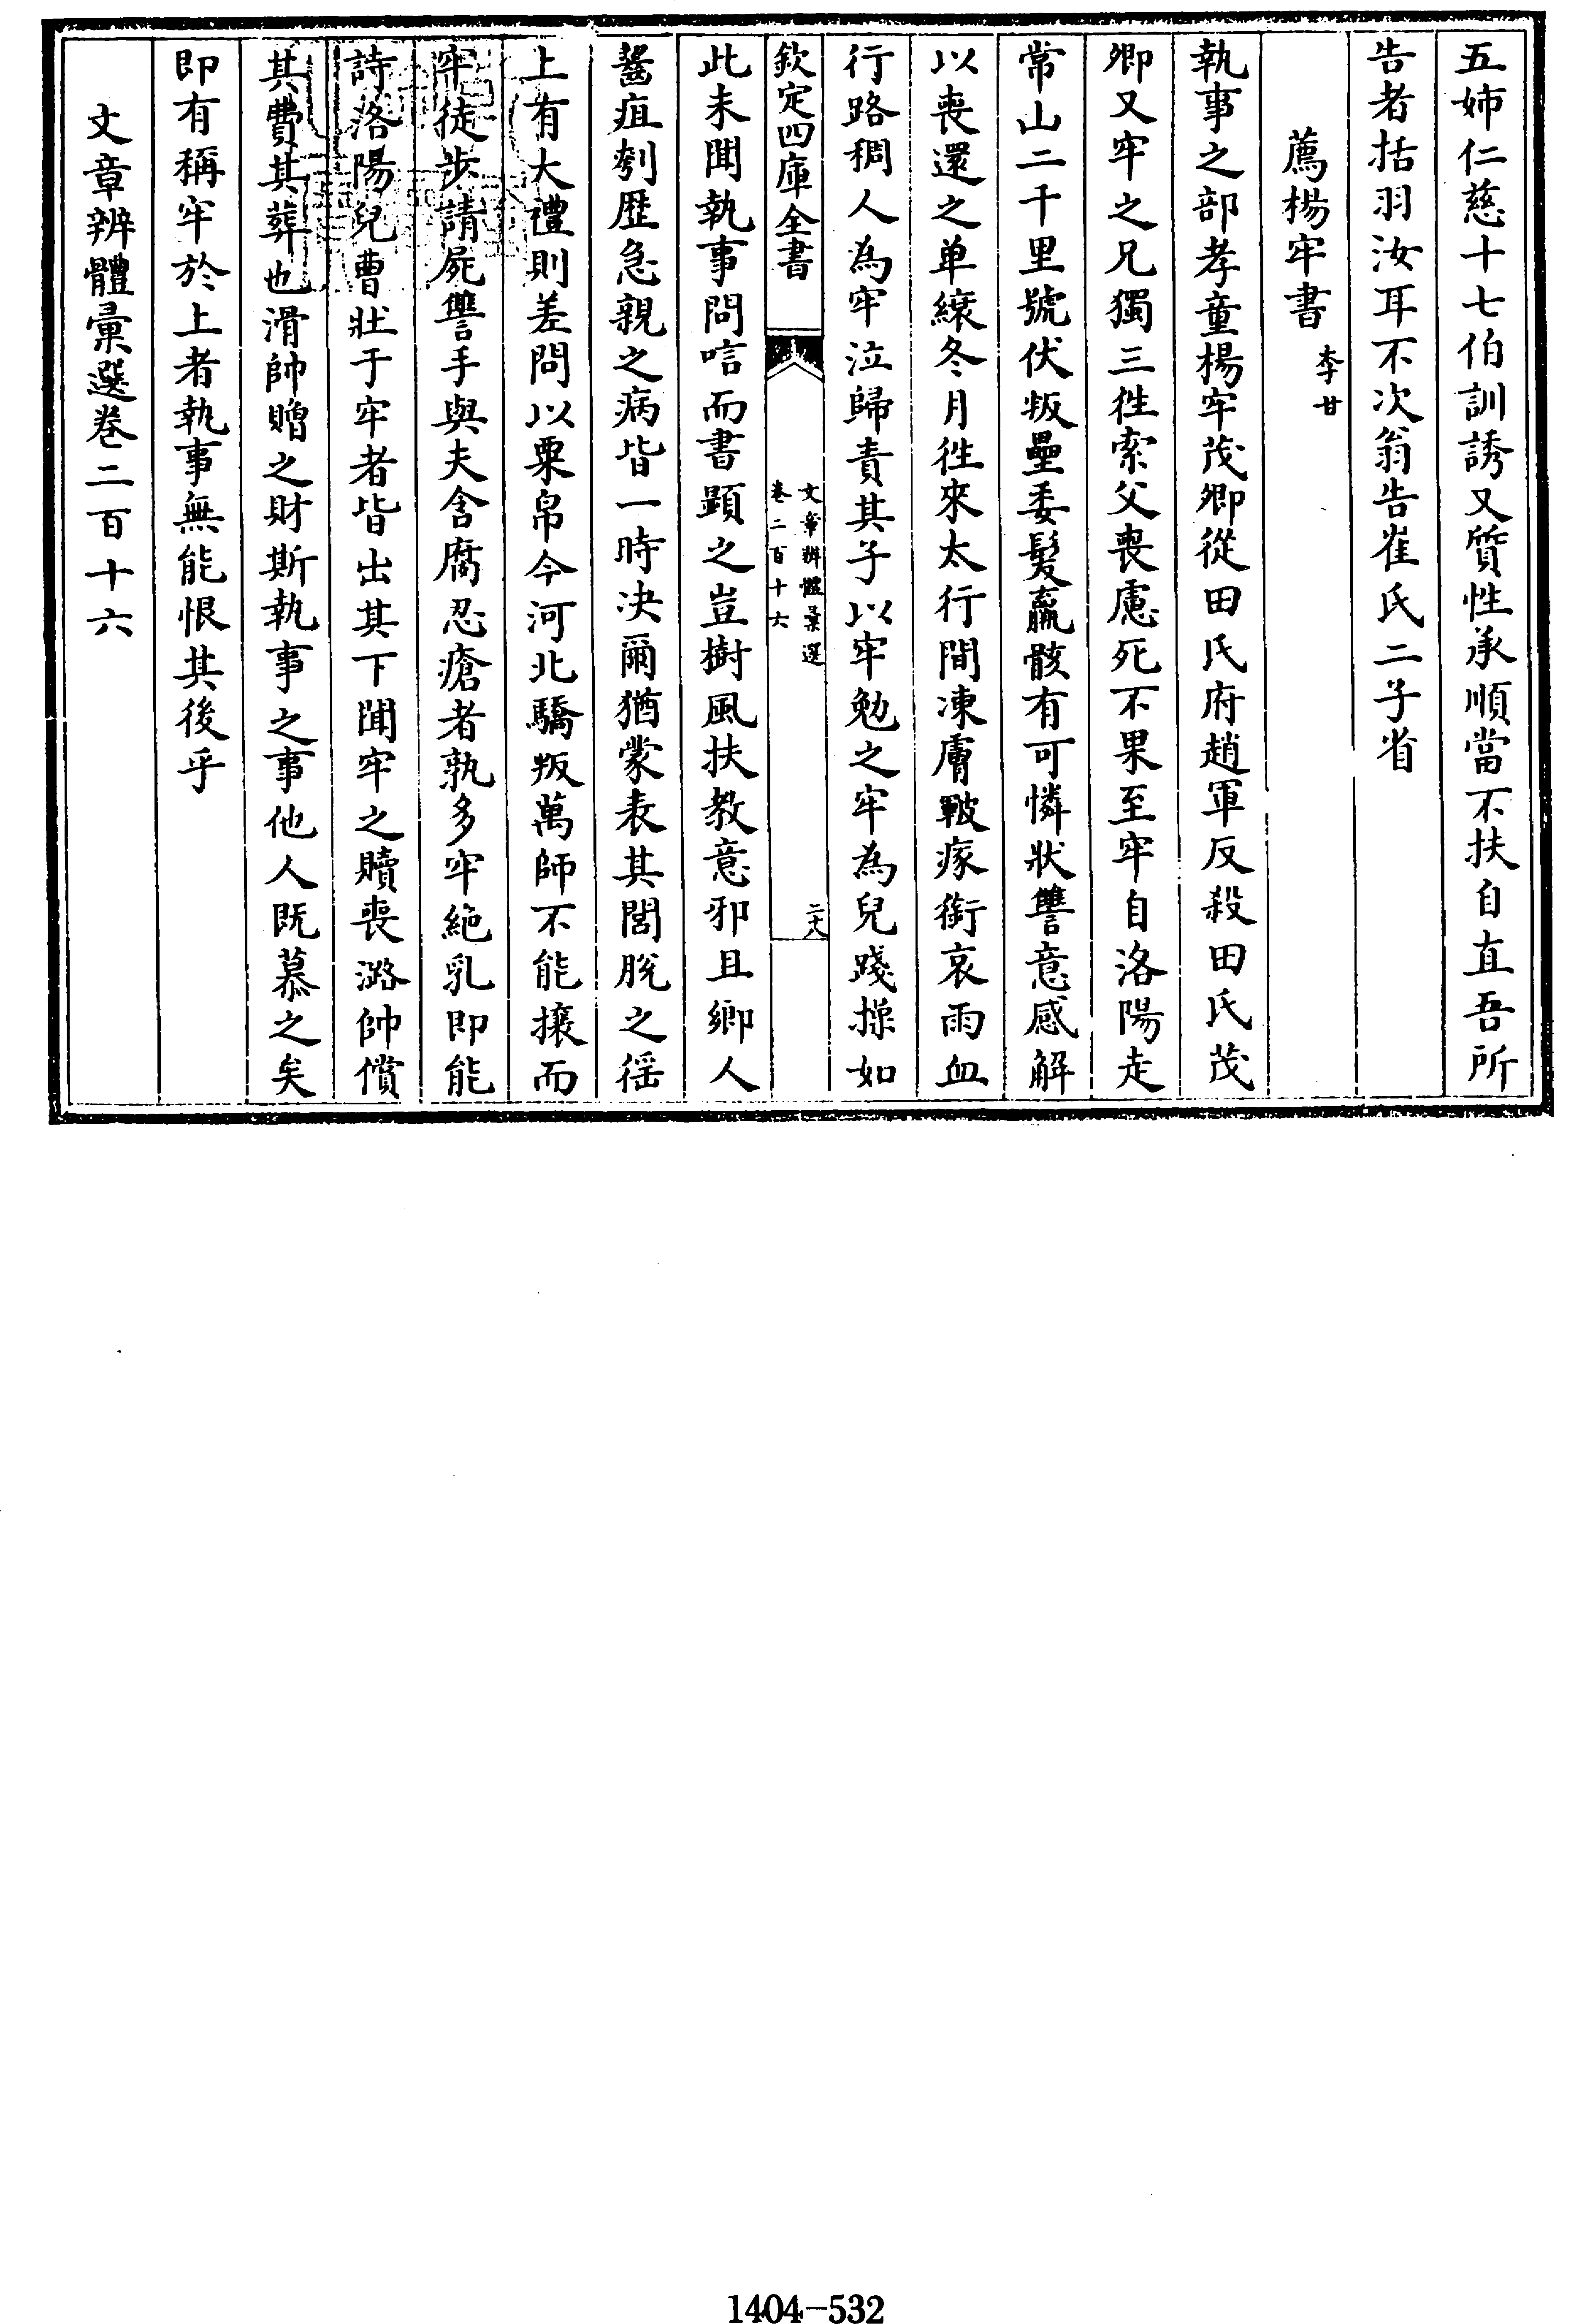 五姉仁慈十七伯訓誘又質性承順當不扶自直吾所
告者括羽汝耳不次翁告崔氏二子省
薦楊牢書 李甘
執事之部孝童楊牢茂卿從田氏府趙軍反殺田氏茂
卿又牢之兄獨三徃索父喪慮死不果至牢自洛陽走
常山二千里號伏叛壘委髮羸骸有可憐狀讐意感解
以喪還之单縗冬月徃來太行間凍膚皸瘃銜哀雨血
行路稠人為牢泣歸責其子以牢勉之牢為兒踐操如
欽定四庫全書
文章辨體彙選
卷二百十六
二十八
此未聞執事問唁而書顕之豈樹風扶教意邪且鄉人
齧疽刳歴急親之病皆一時决爾猶蒙表其閭脫之徭
上有大禮則差問以粟帛今河北驕叛萬師不能攘而
牢徒步請屍讐手與夫含腐忍瘡者孰多牢絶乳即能
詩洛陽兒曹壯于牢者皆出其下聞牢之贖喪潞帥償
其費其葬也滑帥贈之財斯執事之事他人既慕之矣
即有稱牢於上者執事無能恨其後乎
文章辨體彙選卷二百十六
1404-532